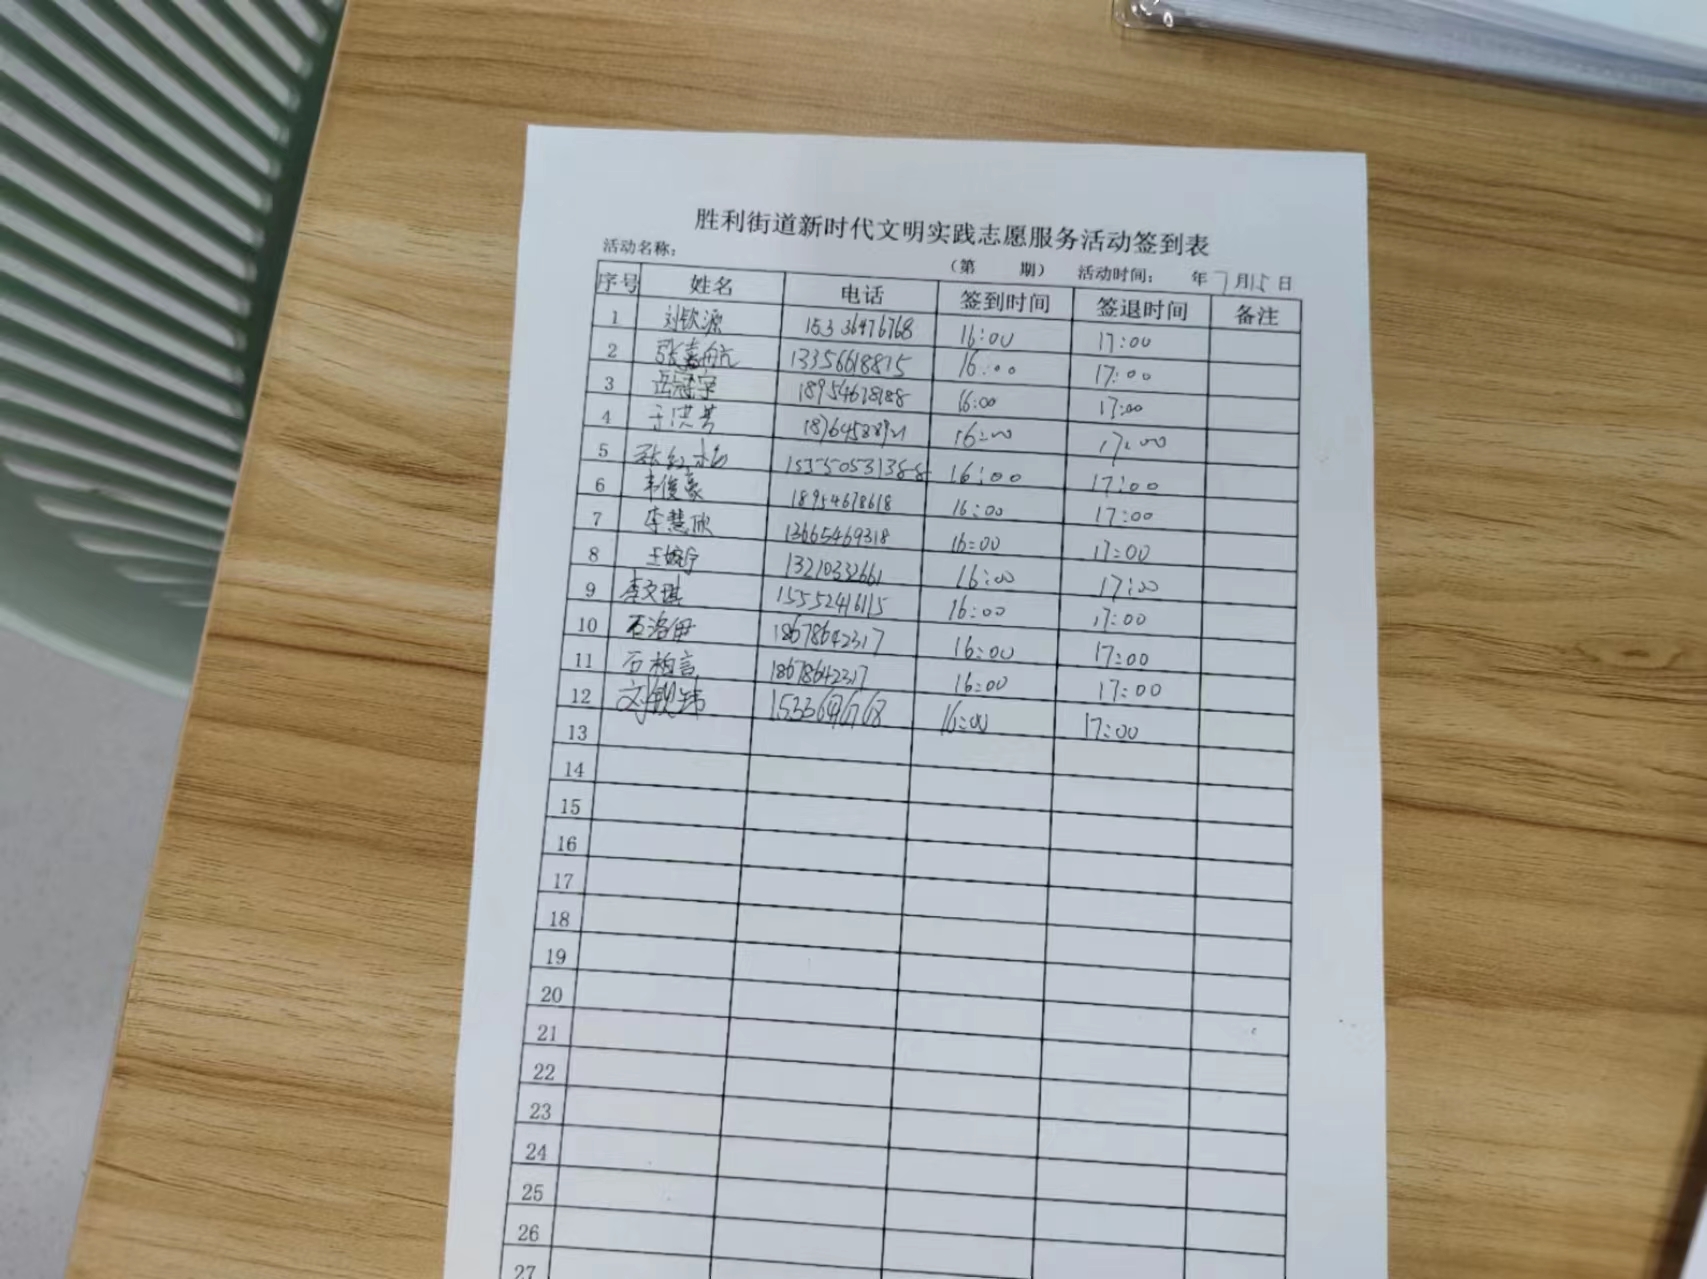 胜利街道新时代文明实践志愿服务活动签到表
活动名称: (第 期) 活动时间: 年 7月15日
序号 姓名 电话 签到时间 签退时间 备注
1 刘钦源 15336476768 16:00 17:00
2 张嘉航 13356618815 16:00 17:00
3 岳冠宇 18954678188 16:00 17:00
4 于洪芳 16:00 17:00
5 16:00 17:00
6 韦俊豪 18954678618 16:00 17:00
7 李慧欣 13665469318 16:00 17:00
8 王婉宁 13210332661 16:00 17:00
9 李文琪 15552416115 16:00 17:00
10 石洛伊 18678642317 16:00 17:00
11 石柏言 18678642317 16:00 17:00
12 刘钦玮 16:00 17:00
13
14
15
16
17
18
19
20
21
22
23
24
25
26
27